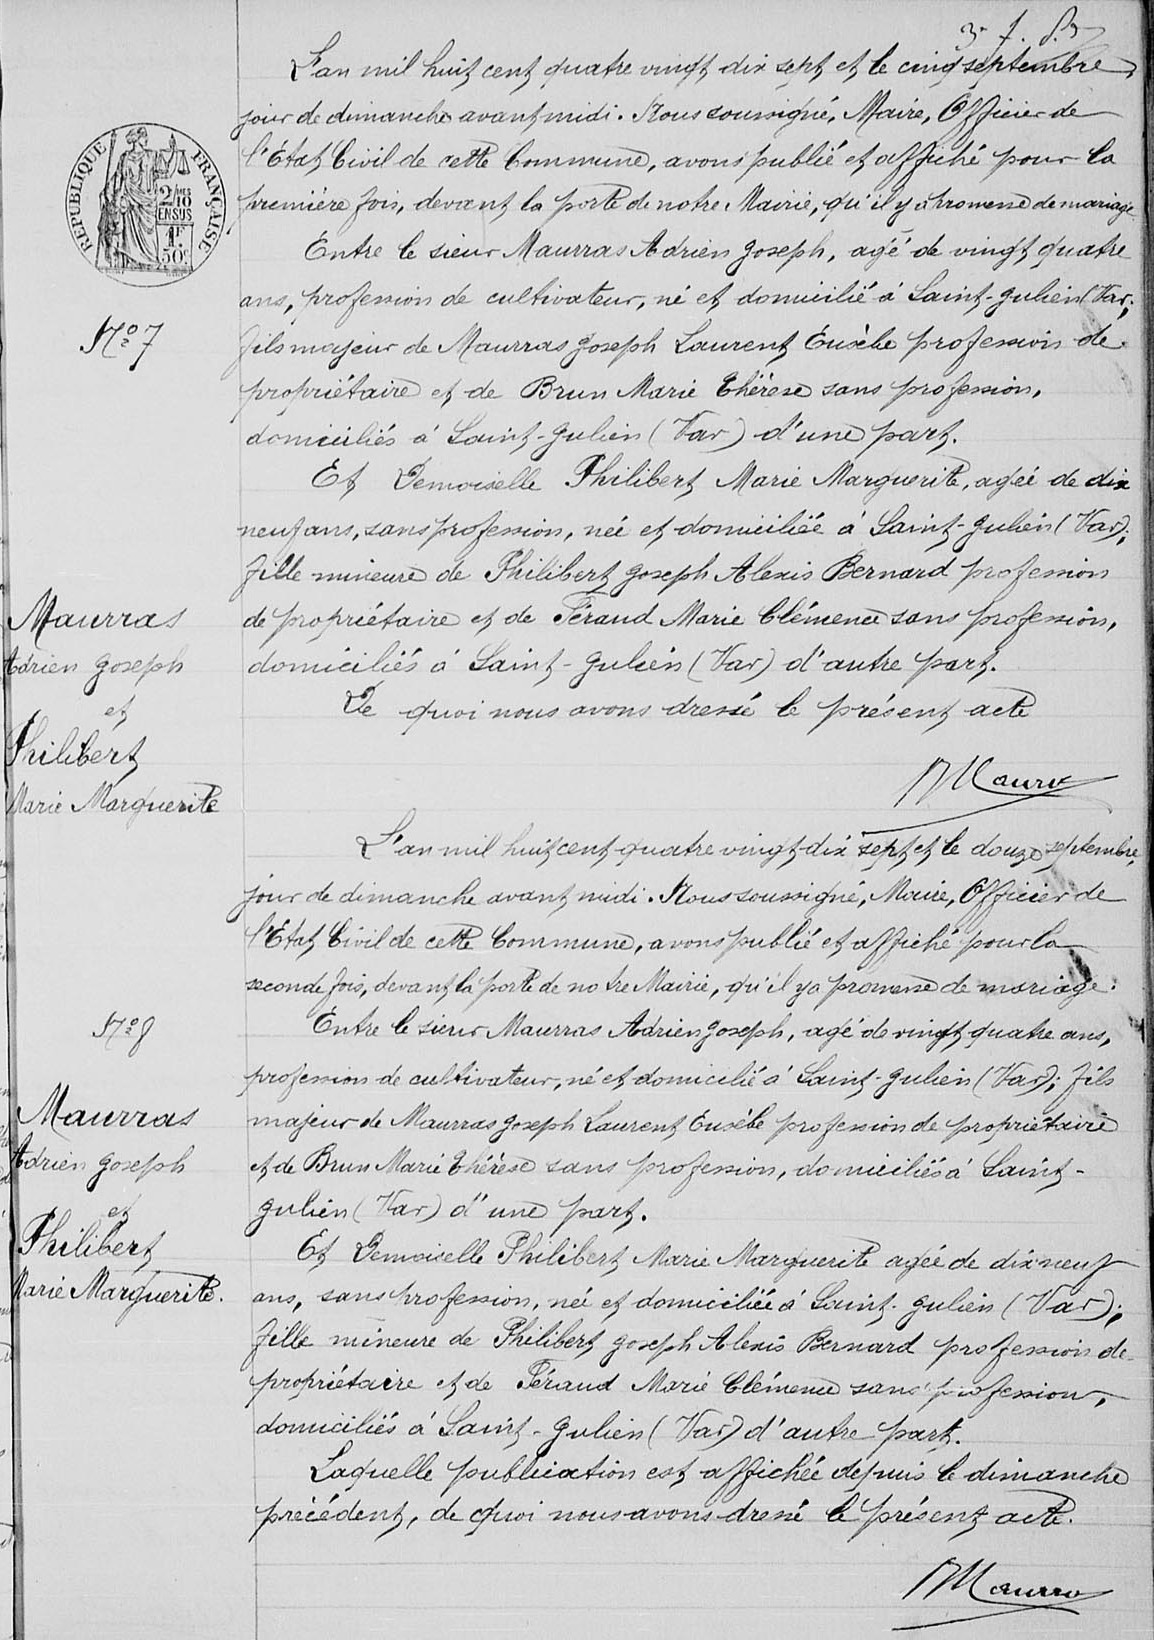 3e f. 
L'an mil huit cent quatre vingt dix sept et le cinq septembre,
jour de dimanche avant midi. Nous soussigné, Maire, Officier de
l'État Civil de cette Commune, avons publié et affiché pour la
première fois, devant la porte de notre Mairie, qu'il y a promesse de mariage
RÉPUBLIQUE FRANÇAISE
2/10 MES
EN SUS
1F
50c
Entre le sieur Maurras Adrien Joseph, agé de vingt quatre
ans, profession de cultivateur, né et domicilié à Saint-Julien (Var;
No 7
fils majeur de Maurras Joseph Laurent Eusèbe profession de
propriétaire et de Brun Marie Thérèse sans profession,
domiciliés à Saint-Julien (Var) d'une part.
Et Demoiselle Philibert Marie Marguerite, agée de dix
neuf ans, sans profession, née et domiciliée à Saint-Julien (Var);
fille mineure de Philibert Joseph Alexis Bernard profession
de propriétaire et de Féraud Marie Clémence sans profession,
domiciliés à Saint-Julien (Var) d'autre part.
De quoi nous avons dressé le présent acte
Maurras
Adrien Joseph
et
Philibert
Marie Marguerite
L'an mil huit cent quatre vingt dix sept et le douze septembre,
jour de dimanche avant midi. Nous soussigné, Maire, Officier de
l'État Civil de cette Commune, avons publié et affiché pour la
seconde fois, devant la porte de notre Mairie, qu'il y a promesse de mariage:
No 8
Entre le sieur Maurras Adrien Joseph, agé de vingt quatre ans,
profession de cultivateur, né et domicilié à Saint-Julien (Var); fils
majeur de Maurras Joseph Laurent Eusèbe profession de propriétaire
et de Brun Marie Thérèse sans profession, domiciliés à Saint-
Julien (Var) d'une part.
Et Demoiselle Philibert Marie Marguerite agée de dix neuf
ans, sans profession, née et domiciliée à Saint-Julien (Var);
fille mineure de Philibert Joseph Alexis Bernard profession de
propriétaire et de Féraud Marie Clémence sans profession,
domiciliés à Saint-Julien (Var) d'autre part.
Laquelle publication est affichée depuis le dimanche
précédent, de quoi nous avons dressé le présent acte.
Maurras
Adrien Joseph
et
Philibert
Marie Marguerite.